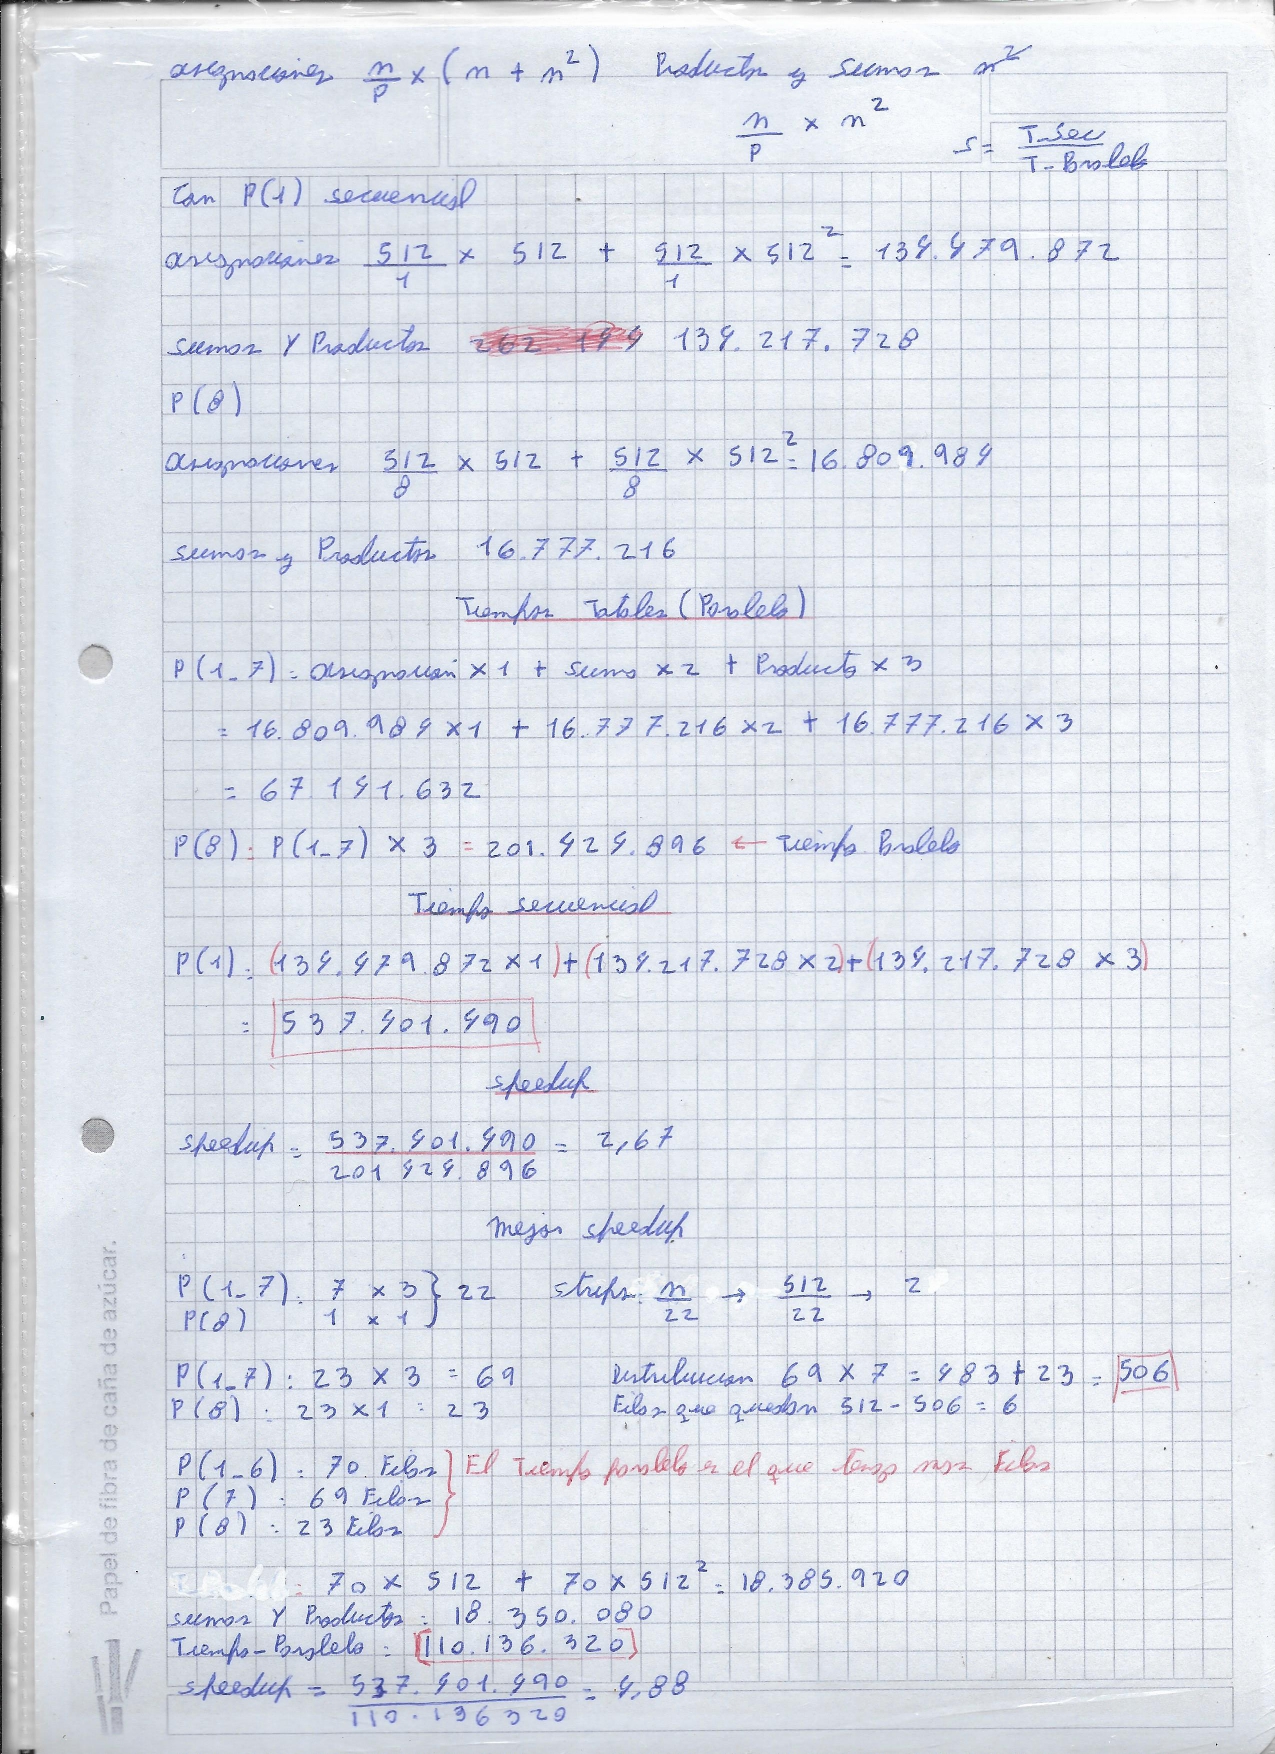 asignaciones n/P x (n + n²) Productos y sumas n²
n/P x n²
S = T-Sec/T-Paralelo
Con P(1) secuencial
asignaciones 512/1 x 512 + 512/1 x 512² = 134.479.872
sumas Y Productos 134.217.728
P(8)
asignaciones 512/8 x 512 + 512/8 x 512² = 16.809.984
sumas y Productos 16.777.216
Tiempos Totales (Paralelo)
P(1_7) : asignación x 1 + suma x 2 + Producto x 3
= 16.809.984 x 1 + 16.777.216 x 2 + 16.777.216 x 3
= 67.141.632
P(8) : P(1_7) x 3 = 201.424.896 ← Tiempo Paralelo
Tiempo secuencial
P(1) : (134.479.872 x 1) + (134.217.728 x 2) + (134.217.728 x 3)
= 537.401.490
speedup
speedup = 537.401.490/201.424.896 = 2,67
Mejor speedup
P(1_7) : 7 x 3 } 22 strips : n/22 → 512/22 → 2
P(8) 1 x 1
P(1_7) : 23 x 3 = 69 Distribucion 69 x 7 = 483 + 23 = 506
P(8) : 23 x 1 = 23 Filas que quedan 512 - 506 = 6
P(1_6) : 70 Filas } El Tiempo paralelo es el que tenga mas Filas
P(7) : 69 Filas
P(8) : 23 Filas
: 70 x 512 + 70 x 512² = 18.385.920
sumas Y Productos : 18.350.080
Tiempo-Paralelo : [110.136.320]
speedup = 537.401.490/110.136320 = 4,88
Papel de fibra de caña de azúcar.